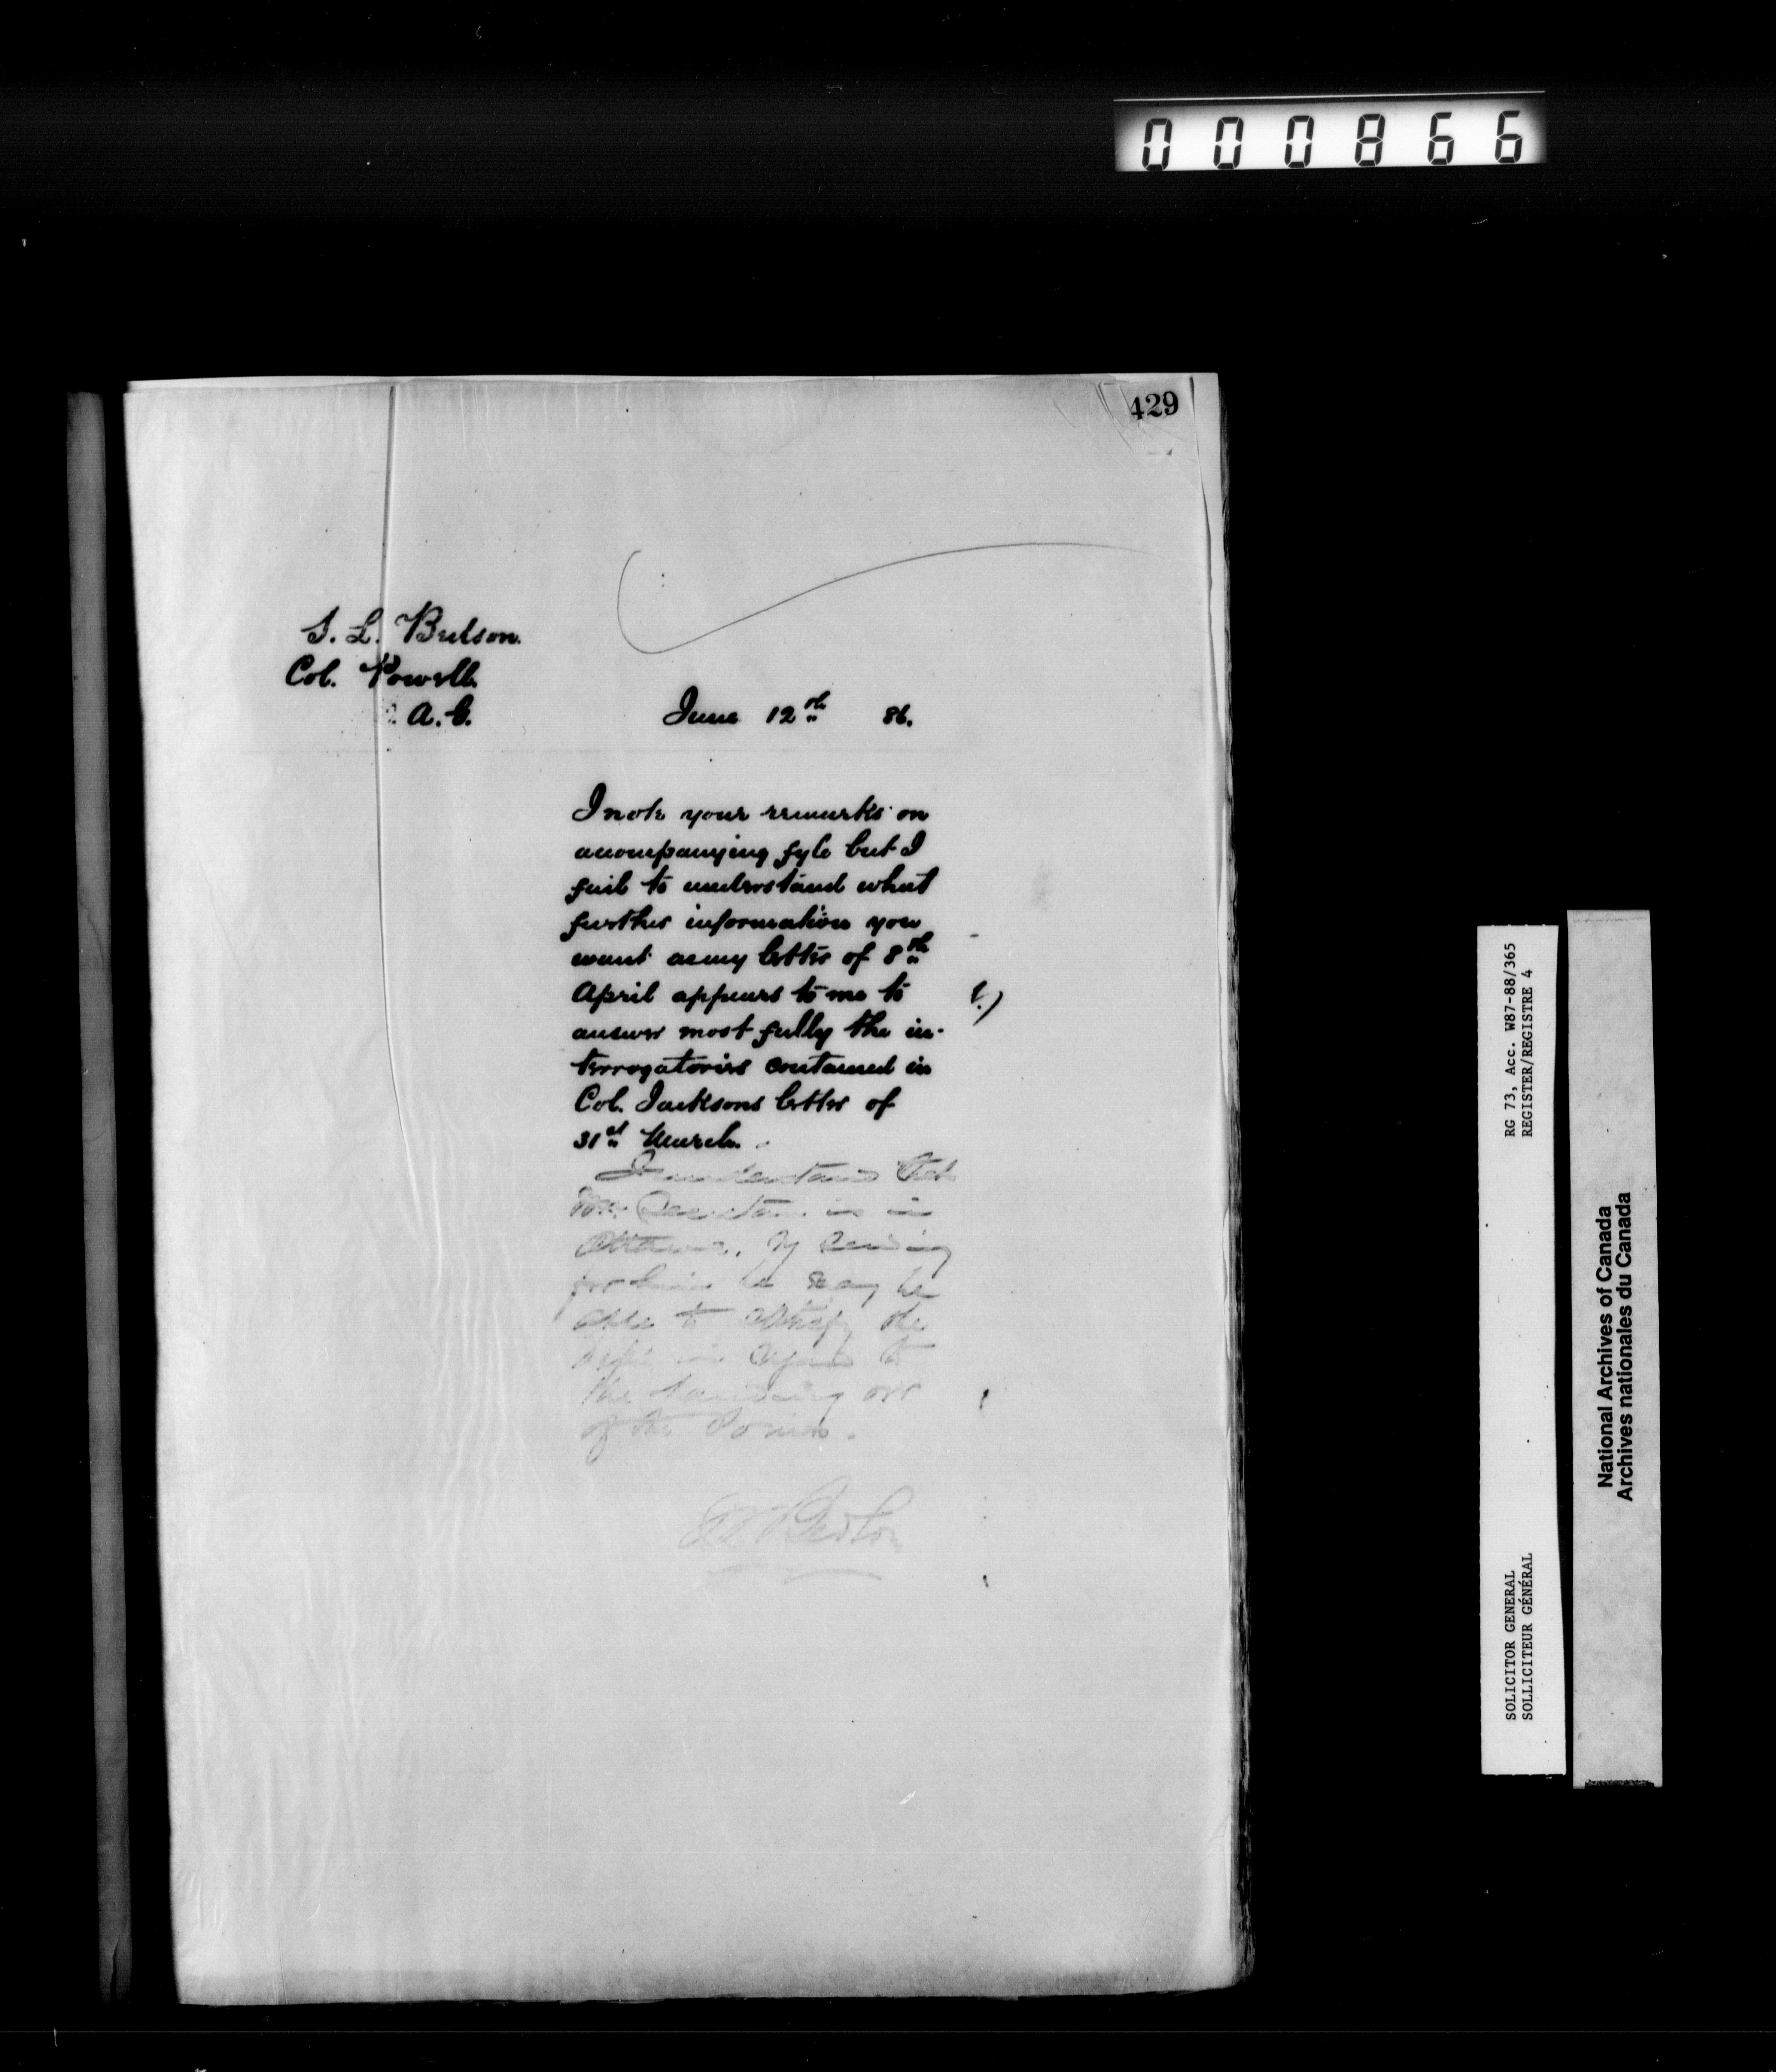 000866
429
S. L. Bedson.
Col. Powell.
A. G.
June 12th 86.
I note your remarks on
accompanying fyle but I
fail to understand what
further information you
want as my letter of 8th
April appears to me to
answer most fully the in-
terrogatories contained in
Col. Jacksons letter of
31st March.
I understand that
Mr. is in
Ottawa. By sending
for him he may be
able to satisfy the
in regard to
the over
of the
S L Bedson
RG 73, Acc. W87-88/365
REGISTER/REGISTRE 4
SOLICITOR GENERAL
SOLLICITEUR GÉNÉRAL
National Archives of Canada
Archives nationales du Canada